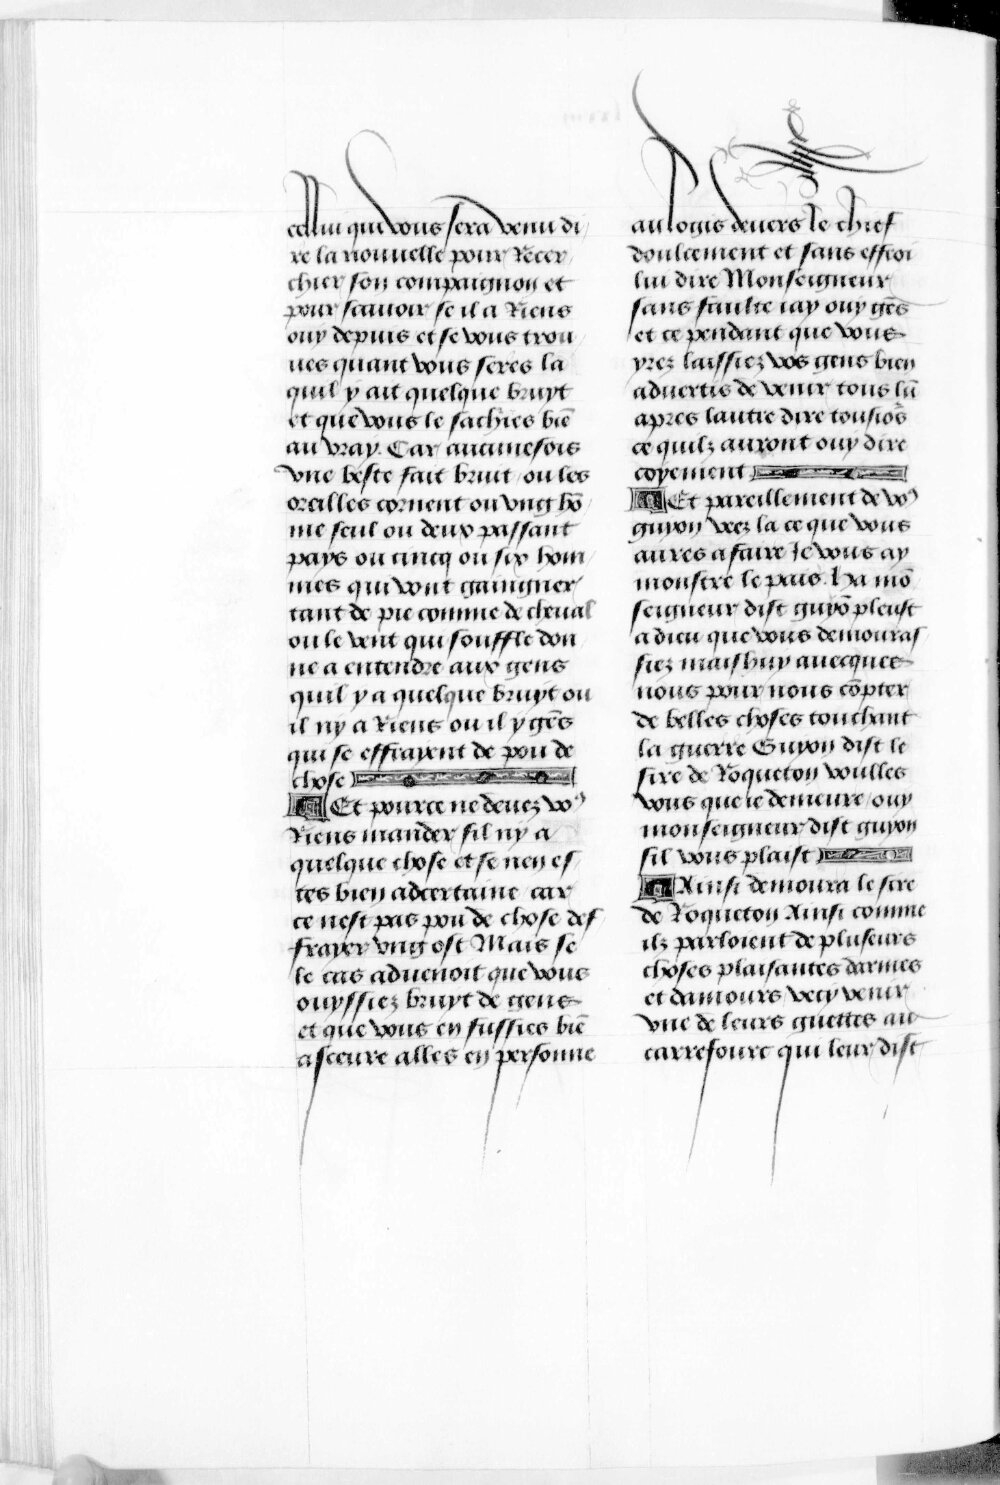 cellui qui vous sera venu di/
re la nouuelle pour Recer/
chier son compaignon et
pour scauoir se il a Riens
ouy depuis et se vous trou/
ues quant vous seres la
quil y ait quelque bruyt
et que vous le sachies biē
au vray. Car aucunefois
vne beste fait bruit / ou les
oreilles cornent ou vng hō
me seul ou deux passant
pays ou cincq ou six hom/
mes qui vont gaingner
tant de pie comme de cheual
ou le vent qui souffle don
ne a entendre aux gens
quil y a quelque bruyt ou
il ny a Riens ou il y gēs
qui se effrayent de pou de
chose
Et pource ne deuez vo9
Riens mander sil ny a
quelque chose et se nen es/
tes bien adcertaine car
ce nest pas pou de chose def
frayer vng ost Mais se
le cas aduenoit que vous
ouyssiez bruyt de gens
et que vous en fussies biē
asceure alles en personne
au logis deuers le chief
doulcement et sans effroi
lui dire Monseigneur
sans faulte iay ouy gēs
et ce pendant que vous
yrez laissiez vos gens bien
aduertis de venir tous lū
apres lautre dire tousiōs
ce quilz auront ouy dire
coyement
Et pareillement de vo9
guyon veez la ce que vous
aures a faire Je vous ay
monstre le pais. Ha mō
seigneur dist guyō pleust
a dieu que vous demouras/
siez maishuy auecques
nous pour nous cōpter
de belles choses touchant
la guerre Guyon dist le
sire de Roqueton voulles
vous que ie demeure / ouy
monseigneur dist guyon
sil vous plaist
Ainsi demoura le sire
de Roqueton Ainsi comme
ilz parloient de pluseurs
choses plaisantes darmes
et damours vecy venir
vne de leurs guettes au
carrefourc qui leur dist